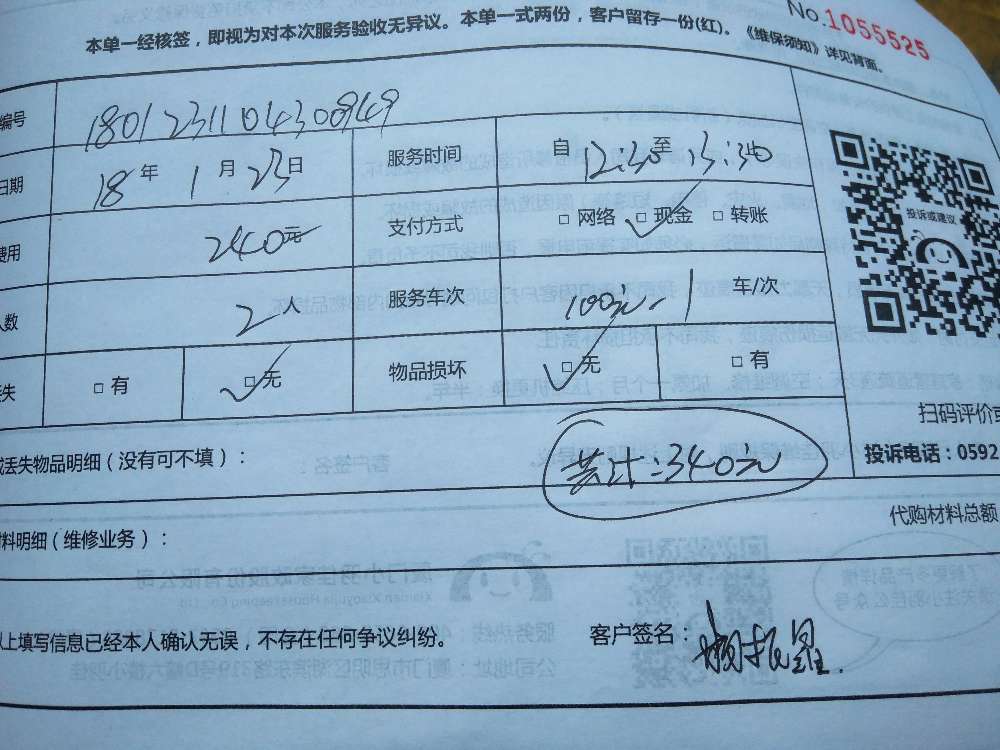 No.1055525
本单一经核签，即视为对本次服务验收无异议。本单一式两份，客户留存一份(红)。《维保须知》详见背面。
编号 1801231104300949
日期 18 年 1 月 23 日 服务时间 自 12:30 至 13:30
费用 240元 支付方式 □ 网络 □ 现金 □ 转账
人数 2 人 服务车次 100元 1 车/次
丢失 □ 有 □ 无 物品损坏 □ 无 □ 有
投诉或建议
扫码评价或
投诉电话：0592
丢失物品明细（没有可不填）：
共计：340元
代购材料总额
材料明细（维修业务）：
以上填写信息已经本人确认无误，不存在任何争议纠纷。 客户签名：